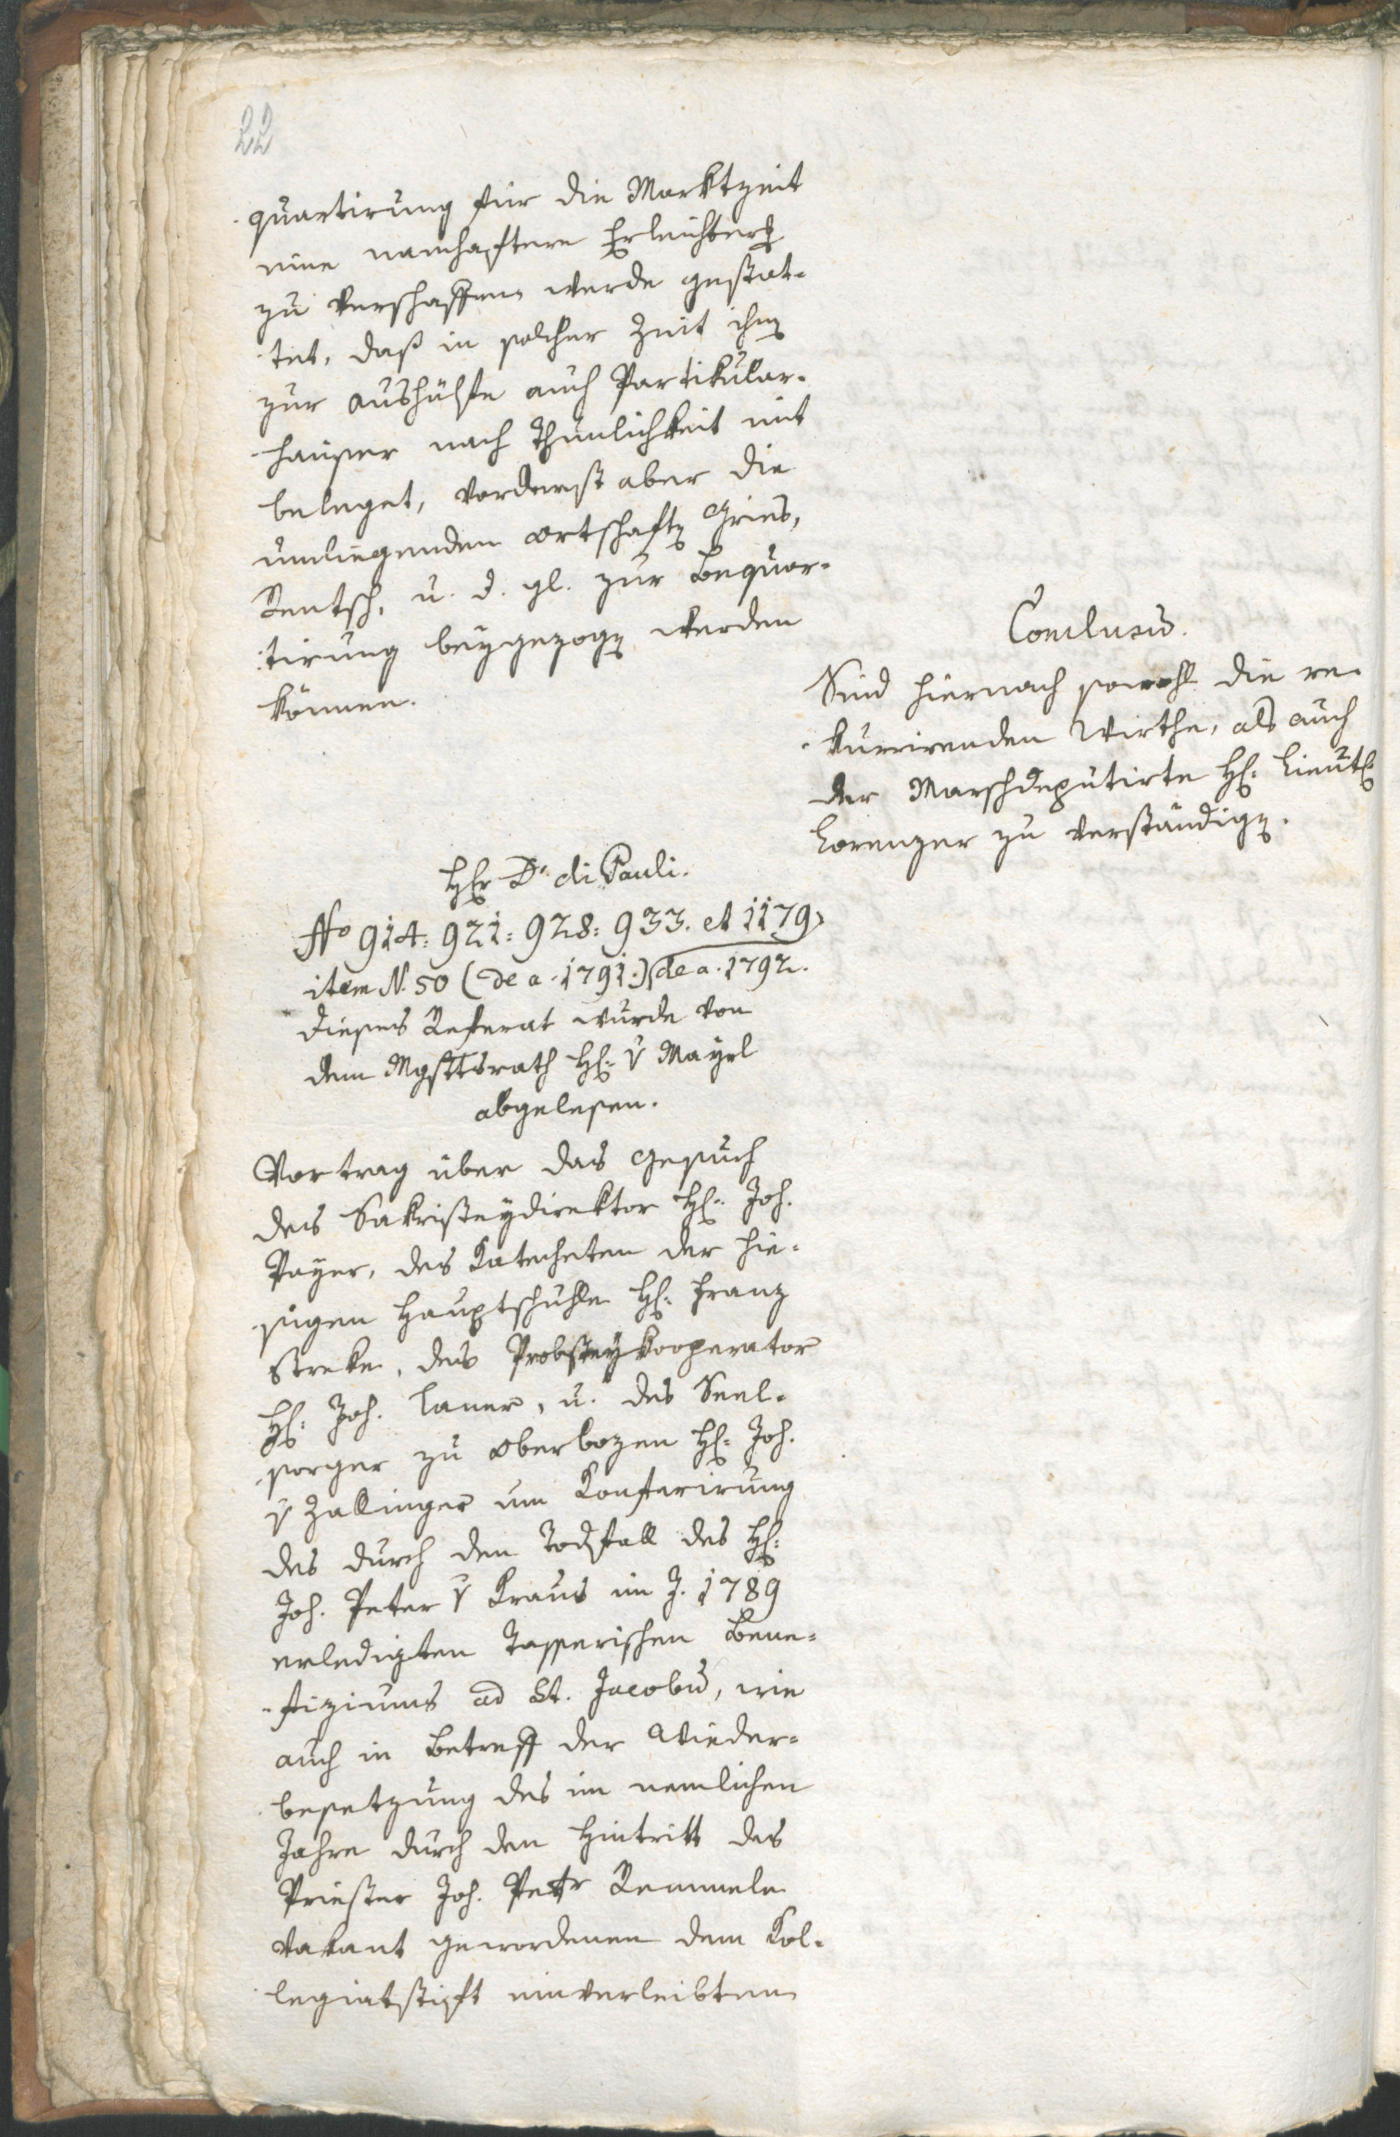 22
quartirung für die Marktzeit
eine namhaftere Erleichterg
zu verschaffen werde gestat-
tet, daß in solcher Zeit ihm
zur Aushülfe auch Partikular-
häuser nach Thunlichkeit mit
beleget, vorderist aber die
umliegenden Ortschaften Gries,
Rentsch, u. d. gl. zur Bequar-
tirung beygezogen werden
können.
Conclusum.
Sind hiernach sowohl die re-
kurrirenden Wirthe, als auch
der Marschdeputirte H: Lieut:
Lorenzer zu verständigen.
Hr Dr di Pauli.
No 914: 921: 928: 933. et 1179
item N. 50 (de a. 1791.) de a. 1792.
Dieses Referat wurde von
dem Mgsttsrath H: v Mayrl
abgelesen.
Vortrag über das Gesuch
des Sakristeydirektor H: Joh.
Payer, des Katecheten der hie-
sigen Hauptschulle H: Franz
Streke, des Probsteykooperator
H: Joh. Laner, u. des Seel-
sorger zu Oberbozen H: Joh.
v Zallinger um Konferirung
des durch den Todfall des H:
Joh. Peter v Kraus im J. 1789
erledigten Tasserischen Bene-
fiziums ad St. Jacobum, wie
auch in Betreff der Wieder-
besetzung des im nemlichen
Jahre durch den Hintritt des
Priester Joh. Petr Remmele
vakant gewordenen dem Kol-
legiatstift einverleibten